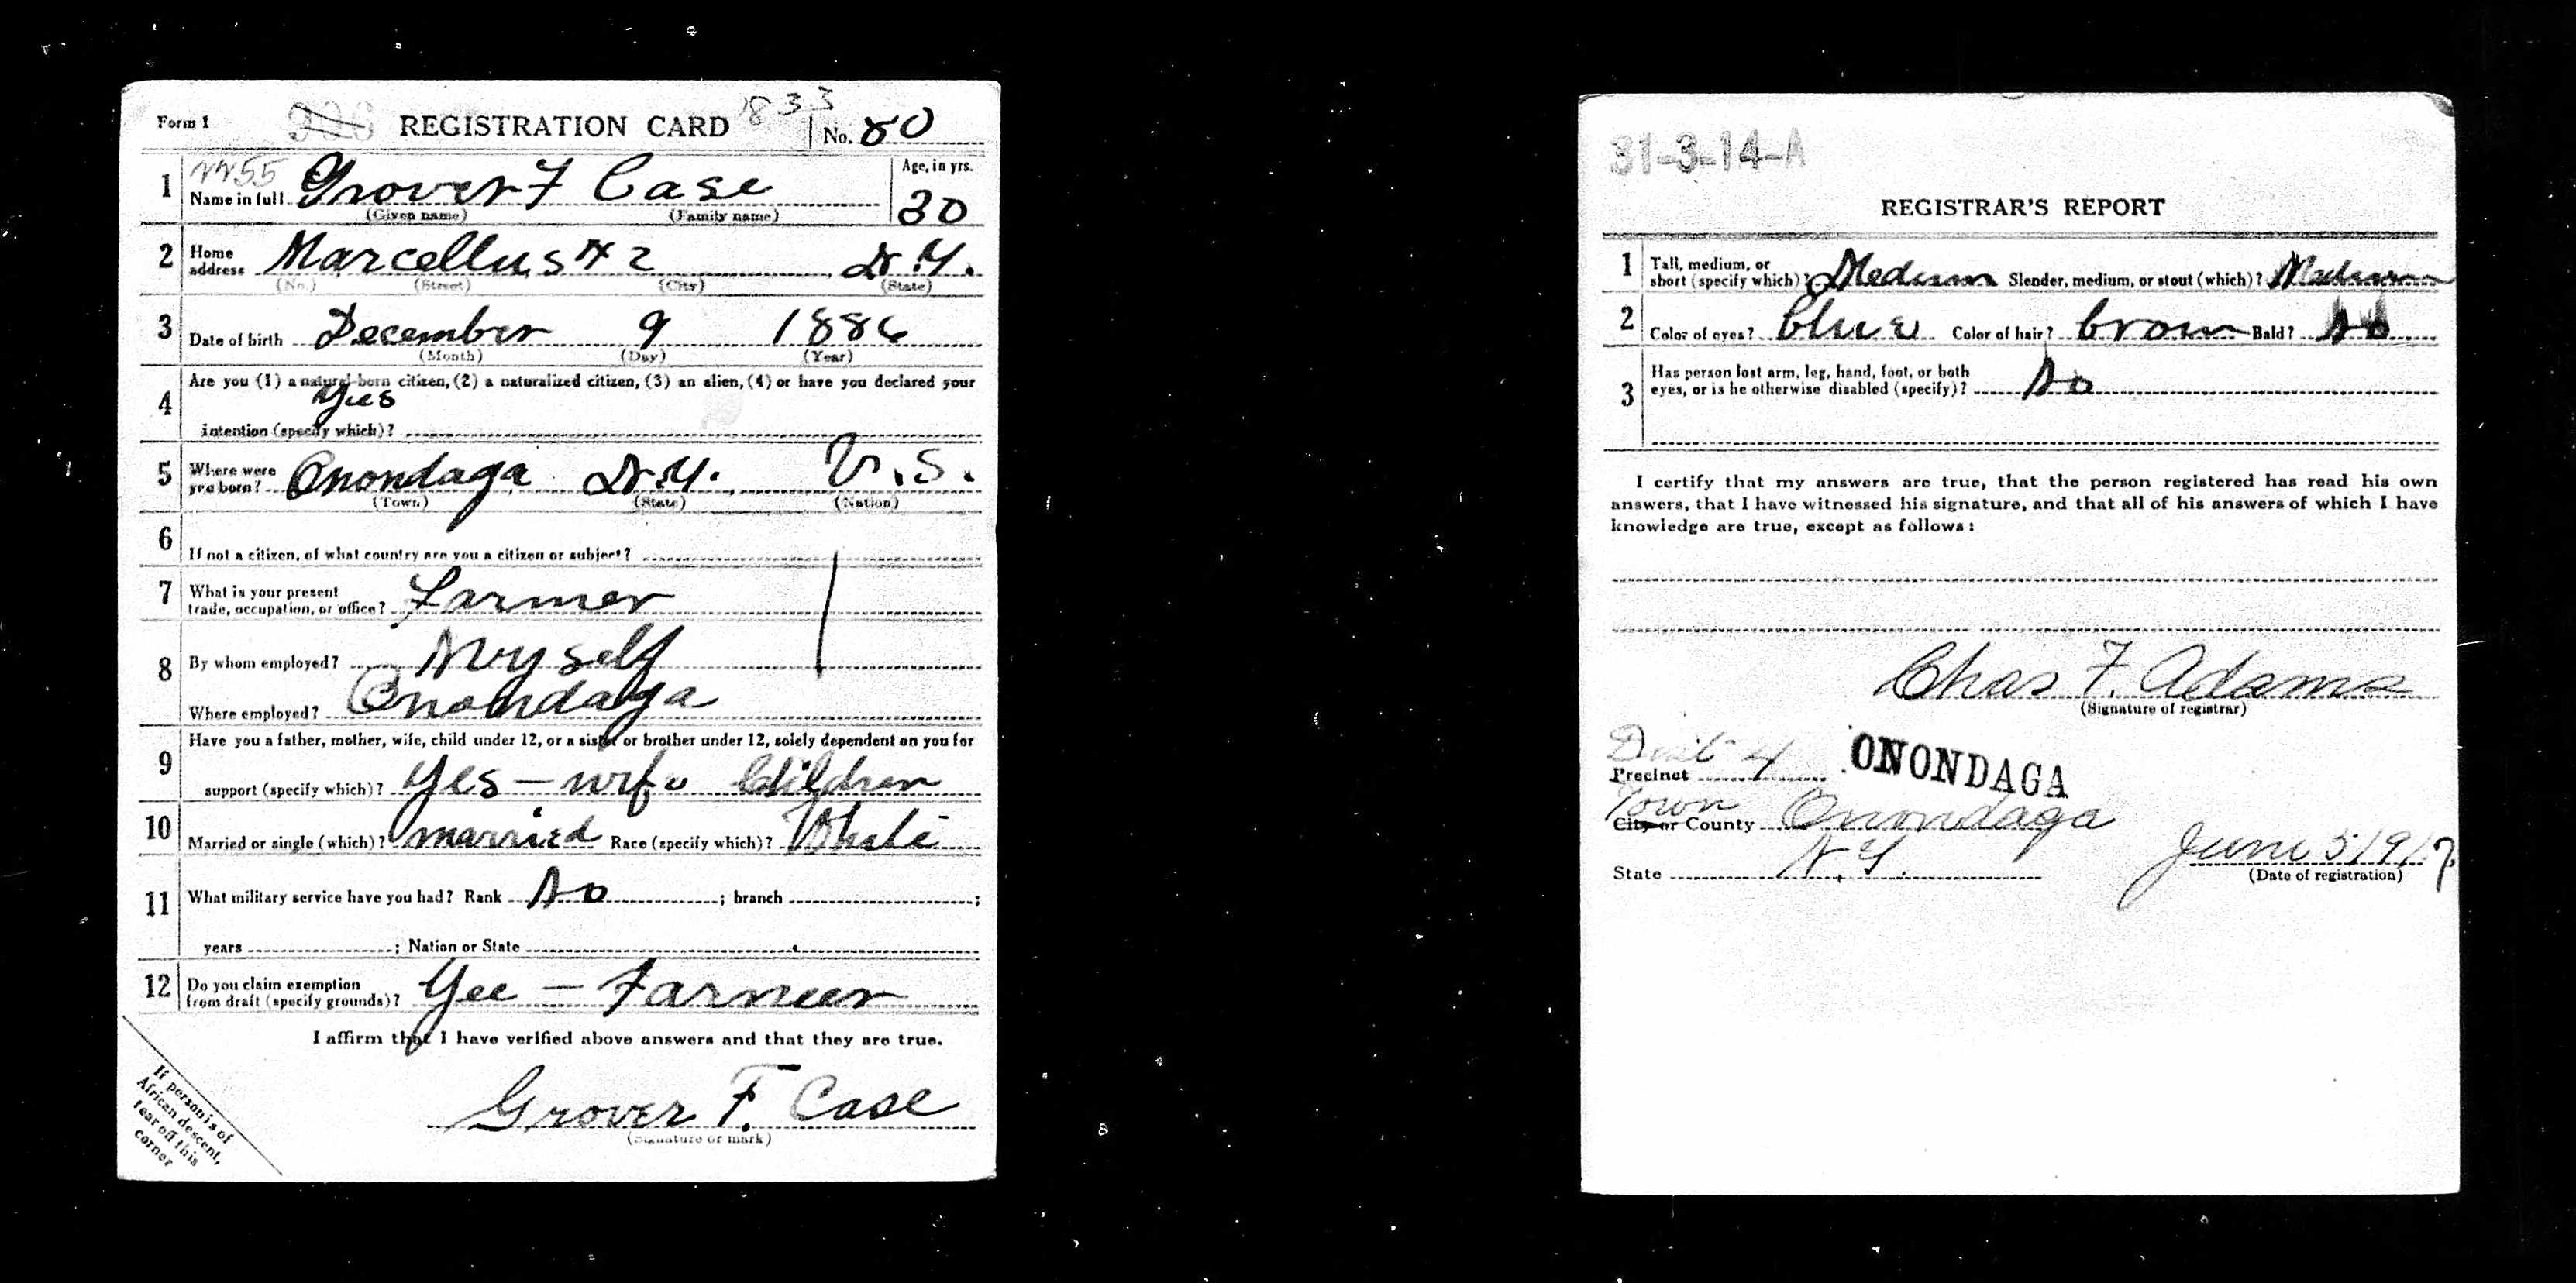 Form 1 REGISTRATION CARD 1833 No. 80
2255
1 Name in full Grover F Case Age, in yrs. 30
(Given name) (Family name)
2 Home address Marcellus # 2 N.Y.
(No.) (Street) (City) (State)
3 Date of birth December 9 1886
(Month) (Day) (Year)
4 Are you (1) a natural-born citizen, (2) a naturalized citizen, (3) an alien, (4) or have you declared your
Yes
intention (specify which)?
5 Where were you born? Onondaga N.Y. U.S.
(Town) (State) (Nation)
6 If not a citizen, of what country are you a citizen or subject?
7 What is your present trade, occupation, or office? Farmer
8 By whom employed? Myself
Where employed? Onondaga
9 Have you a father, mother, wife, child under 12, or a sister or brother under 12, solely dependent on you for
support (specify which)? Yes - wife Children
10 Married or single (which)? married Race (specify which)? White
11 What military service have you had? Rank No ; branch ;
years ; Nation or State
12 Do you claim exemption from draft (specify grounds)? Yes - Farmer
I affirm that I have verified above answers and that they are true.
Grover F. Case
(Signature or mark)
If person is of
African descent,
tear off this
corner
31-3-14-A
REGISTRAR'S REPORT
1 Tall, medium, or short (specify which)? Medium Slender, medium, or stout (which)? Medium
2 Color of eyes? blue Color of hair? brown Bald? No
3 Has person lost arm, leg, hand, foot, or both
eyes, or is he otherwise disabled (specify)? No
I certify that my answers are true, that the person registered has read his own
answers, that I have witnessed his signature, and that all of his answers of which I have
knowledge are true, except as follows:
Chas F. Adams
(Signature of registrar)
Dist 4 ONONDAGA
Precinct
Town
City or County Onondaga
State N.Y. June 5 1917
(Date of registration)